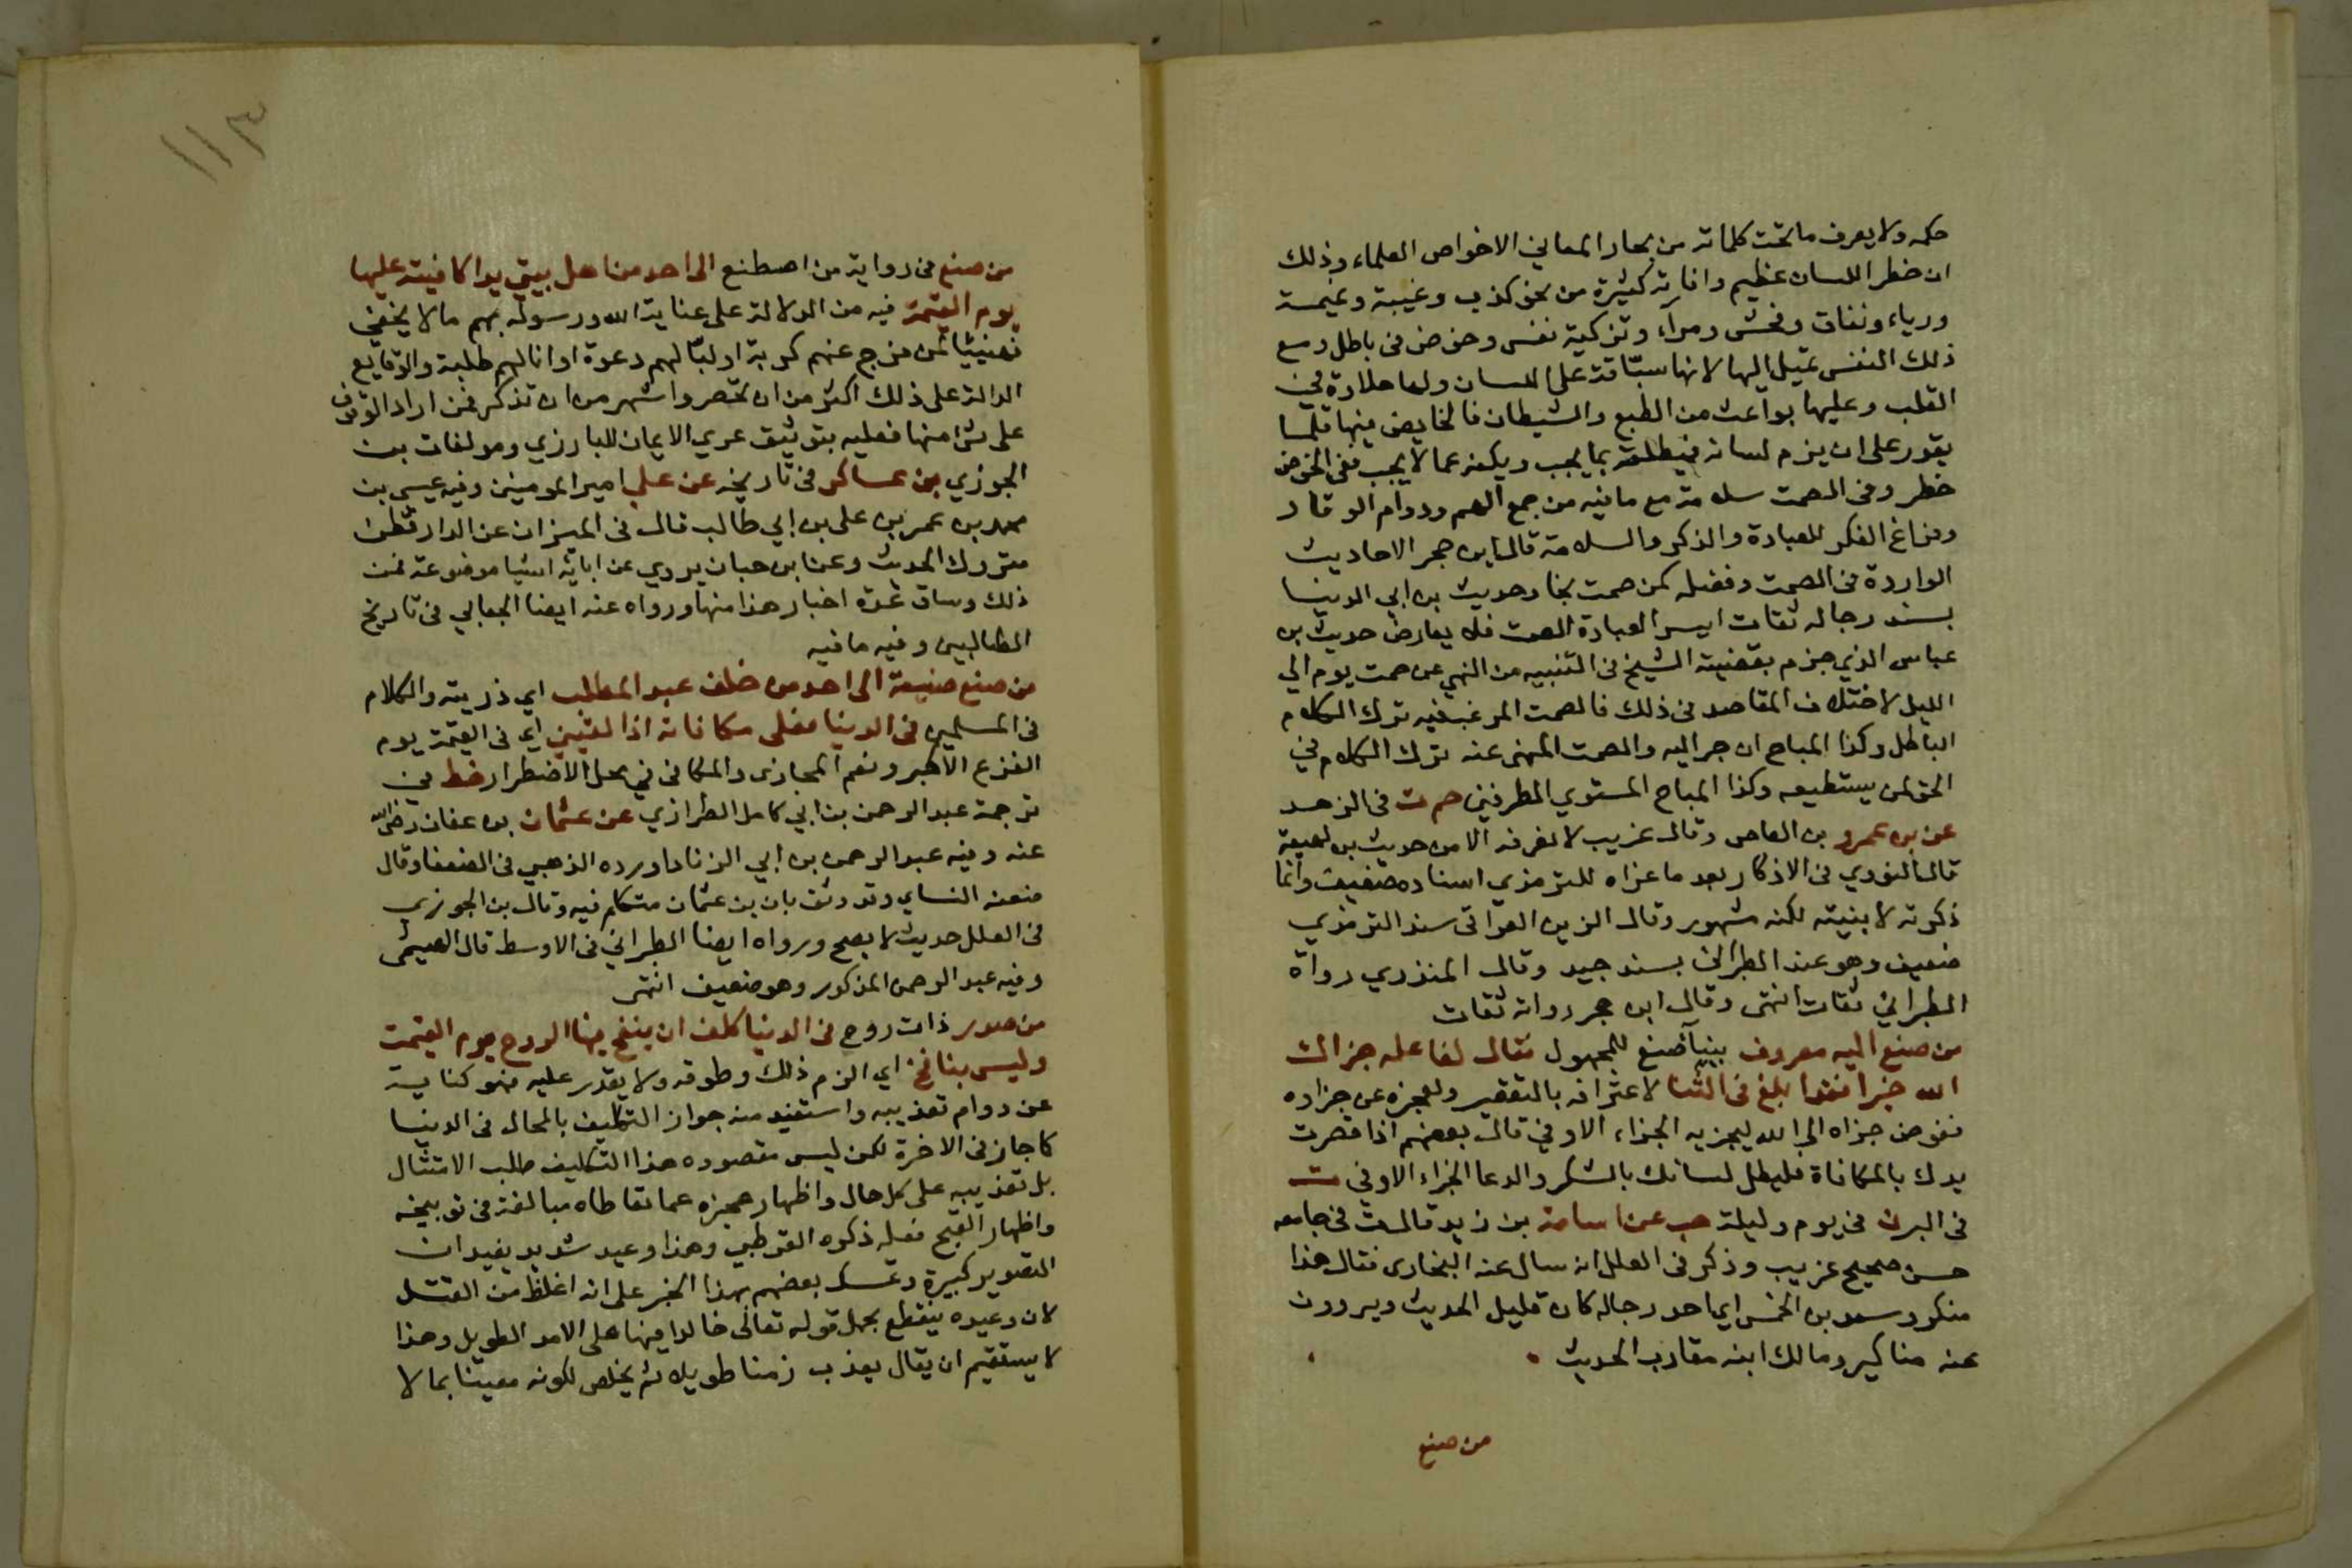 حكمه ولا يعرف ما تحت كلماته من بحار المعاني الا خواص العلماء وذلك
ان خطر اللسان عظيم وافاته كثيرة من نحو كذب وغيبة ونميمة
ورياء ونفاق وفحش ومراء وتزكية نفس وخوض في باطل ومع
ذلك النفس تميل اليها لانها سباقة على اللسان ولها حلاوة في
القلب وعليها بواعث من الطبع والشيطان فالخايض فيها قلما
يقدر على ان يزم لسانه فيطلقه بما يجب ويكفه عما لا يجب ففي الخوض
خطر وفي الصمت سلامة مع ما فيه من جمع الهم ودوام الوقار
وفراغ الفكر للعبادة والذكر والسلامة قال ابن حجر الاحاديث
الواردة في الصمت وفضله كمن صمت نجا وحديث بن ابي الدنيا
بسند رجاله ثقات ايسر العبادة الصمت فلا يعارض حديث بن
عباس الذي جزم بقضيته الشيخ في التنبيه من النهي عن صمت يوم الى
الليل لاختلاف المقاصد في ذلك فالصمت المرغب فيه ترك الكلام
الباطل وكذا المباح ان جر اليه والصمت المنهى عنه ترك الكلام في
الحق لمن يستطيعه وكذا المباح المستوي الطرفين حم ت في الزهد
عن بن عمرو بن العاص وقال غريب لا نعرفه الا من حديث بن لهيعة
قال النووي في الاذكار بعد ما عزاه للترمذي اسناده ضعيف وانما
ذكرته لابينه لكنه مشهور وقال الزين العراقي سند الترمذي
ضعيف وهو عند الطبراني بسند جيد وقال المنذري رواة
الطبراني ثقات انتهى وقال ابن حجر رواته ثقات
من صنع اليه معروف ببنا صنع للمجهول فقال لفاعله جزاك
الله خيرا فقد ابلغ في الثنا لاعترافه بالتقصير ولعجزه عن جزاءه
ففوض جزاه الى الله ليجزيه الجزاء الاوفي قال بعضهم اذا قصرت
يدك بالمكافاة فليطل لسانك بالشكر والدعا الجزاء الاوفي ت
في البر ن في يوم وليلة حب عن اسامة بن زيد قال ت في جامعه
حسن صحيح غريب وذكر في العلل انه سال عنه البخارى فقال هذا
منكر وسعد بن الخمس اي احد رجاله كان قليل الحديث ويروون
عنه مناكير ومالك ابنه مقارب الحديث
من صنع
١١٣
من صنع في رواية من اصطنع الى احد من اهل بيتي يدا كافيته عليها
يوم القيمة فيه من الدلالة على عناية الله ورسوله بهم ما لا يخفى
فهنيئا لمن فرج عنهم كربة او لبا لهم دعوة او انالهم طلبة والوقايع
الدالة على ذلك اكثر من ان تحصر واشهر من ان تذكر فمن اراد الوقوف
على شئ منها فعليه بتوثيق عرى الايمان للبارزي ومولفات بن
الجوزي بن عساكر في تاريخه عن على امير المومنين وفيه عيسى بن
محمد بن عمر بن على بن ابي طالب قال في الميزان عن الدارقطن
متروك الحديث وعن ابن حبان يروي عن ابائه اشيا موضوعة فمن
ذلك وساق عدة اخبار هذا منها ورواه عنه ايضا الجعابي في تاريخ
الطالبيين وفيه ما فيه
من صنع صنيعة الى احد من خلف عبد المطلب اي ذريته والكلام
في المسلمين في الدنيا فعلى مكافاته اذا لقيني اي في القيمة يوم
الفزع الاكبر ونعم المجازى والمكافى في محل الاضطرار خط في
ترجمة عبد الرحمن بن ابي كامل الطرازي عن عثمان بن عفان رضى الله
عنه وفيه عبد الرحمن بن ابي الزناد اورده الذهبي في الضعفا وقال
ضعفه النساي وقد وثق بان بن عثمان متكلم فيه وقال بن الجوزي
في العلل حديث لا يصح ورواه ايضا الطبراني في الاوسط قال الهيثمى
وفيه عبد الرحمن المذكور وهو ضعيف انتهى
من صور ذات روح في الدنيا كلف ان ينفخ فيها الروح يوم القيمة
وليس بنافخ اي الزم ذلك وطوقه ولا يقدر عليه فهو كناية
عن دوام تعذيبه واستفيد منه جواز التكليف بالمحال في الدنيا
كما جاز في الاخرة لكن ليس مقصوده هذا التكليف طلب الامتثال
بل تعذيبه على كل حال واظهار عجزه عما تعاطاه مبالغة في توبيخه
واظهار القبح فعله ذكره القرطبي وهذا وعيد شديد يفيد ان
التصوير كبيرة وتمسك بعضهم بهذا الخبر على انه اغلظ من القتل
لان وعيده ينقطع بحمل قوله تعالى خالدا فيها على الامد الطويل وهذا
لا يستقيم ان يقال يعذب زمنا طويلا ثم يخلص لكونه مغيتا بما لا